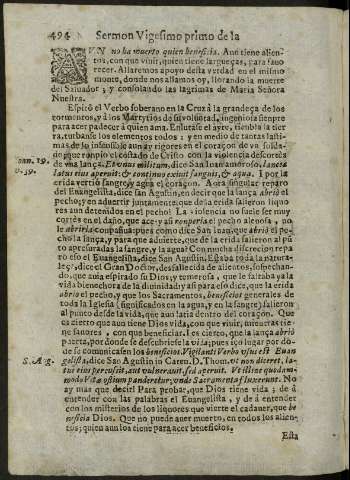 494 Sermon Vigesimo primo de la
AVN no ha muerto quien beneficia. Aun tiene alien-
tos, con que viuir, quien tiene larguezas, para fauo
recer. Allaremos apoyo desta verdad en el mismo
monte, donde nos allamos oy, llorando la muerte
del Saluador; y consolando las lagrimas de Maria Señora
Nuestra.
Espirò el Verbo soberano en la Cruz à la grandeça de los
tormentos, y à los Martyrios de su voluntad, ingeniosa siempre
para acer padecer à quien ama. Enlutase el ayre, tiembla la tier
ra, turbanse los elementos todos; y en medio de tantas lasti-
mas de lo insensible aun ay rigores en el coraçon de vn solda-
do, que rompio el costado de Cristo con la violencia descortès
de vna lança. Et vnus militum, dice San Iuan, lancea
Ioan. 19. latus eius aperuit: & continuo exiuit sanguis, & aqua. I por la
v. 39. erida vertiò sangre, y agua el coraçon. Aora singular reparo
del Euangelista, dice san Agustin, en decir que la lança abriò el
pecho; y en aduertir juntamente, que de la erida salieron liquo
res aun detenidos en el pecho? La violencia no suele ser muy
cortès en el daño, que ace; y assi romperia el pecho aleuosa, no
le abriria compasiua: pues como dice San Iuan, que abriò el pe-
cho la lança, y para que aduierte, que de la erida salieron al pũ
to apresuradas la sangre, y la agua? Con mucha discrecion repa
rò eso el Euangelista, dice San Agustin. Estaba toda la natura-
leça, dice el Gran Doctor, desfallecida de alientos, sospechan-
do, que auia espirado su Dios, y temerosa, que le faltaba ya la
vida bienechora de la diuinidad y asi para eso dice, que la erida
abriò el pecho, y que los Sacramentos, beneficios generales de
toda la Iglesia (significados en la agua, y en la sangre) salieron
al punto desde la vida, que aun latia dentro del coraçon. Que
es cierto que aun tiene Dios vida, con que viuir, mientras tie-
ne fauores, con que beneficiar. I es cierto, que la lança abriò
puerta, por donde se descubriese la vida; pues iço lugar por dõ-
de se comunicasen los beneficios. Vigilanti Verbo vsus est Euan
S. Ag. gelista, dice San Agustin in Caten. D. Thom. vt non diceret, la-
tus eius percusit, aut vulnerauit, sed aperuit. Vt illine quodam-
modo Vitæ ostium panderetur, vnde Sacramenta fluxerunt. No
ay mas que decir? Para probar, que Dios tiene vida; de à
entender con las palabras el Euangelista, y de à entender
con los misterios de los liquores que vierte el cadauer, que be
neficia Dios. Que no puede auer muerto, en todos los alien-
tos; quien aun los tiene para acer beneficios.
Esta